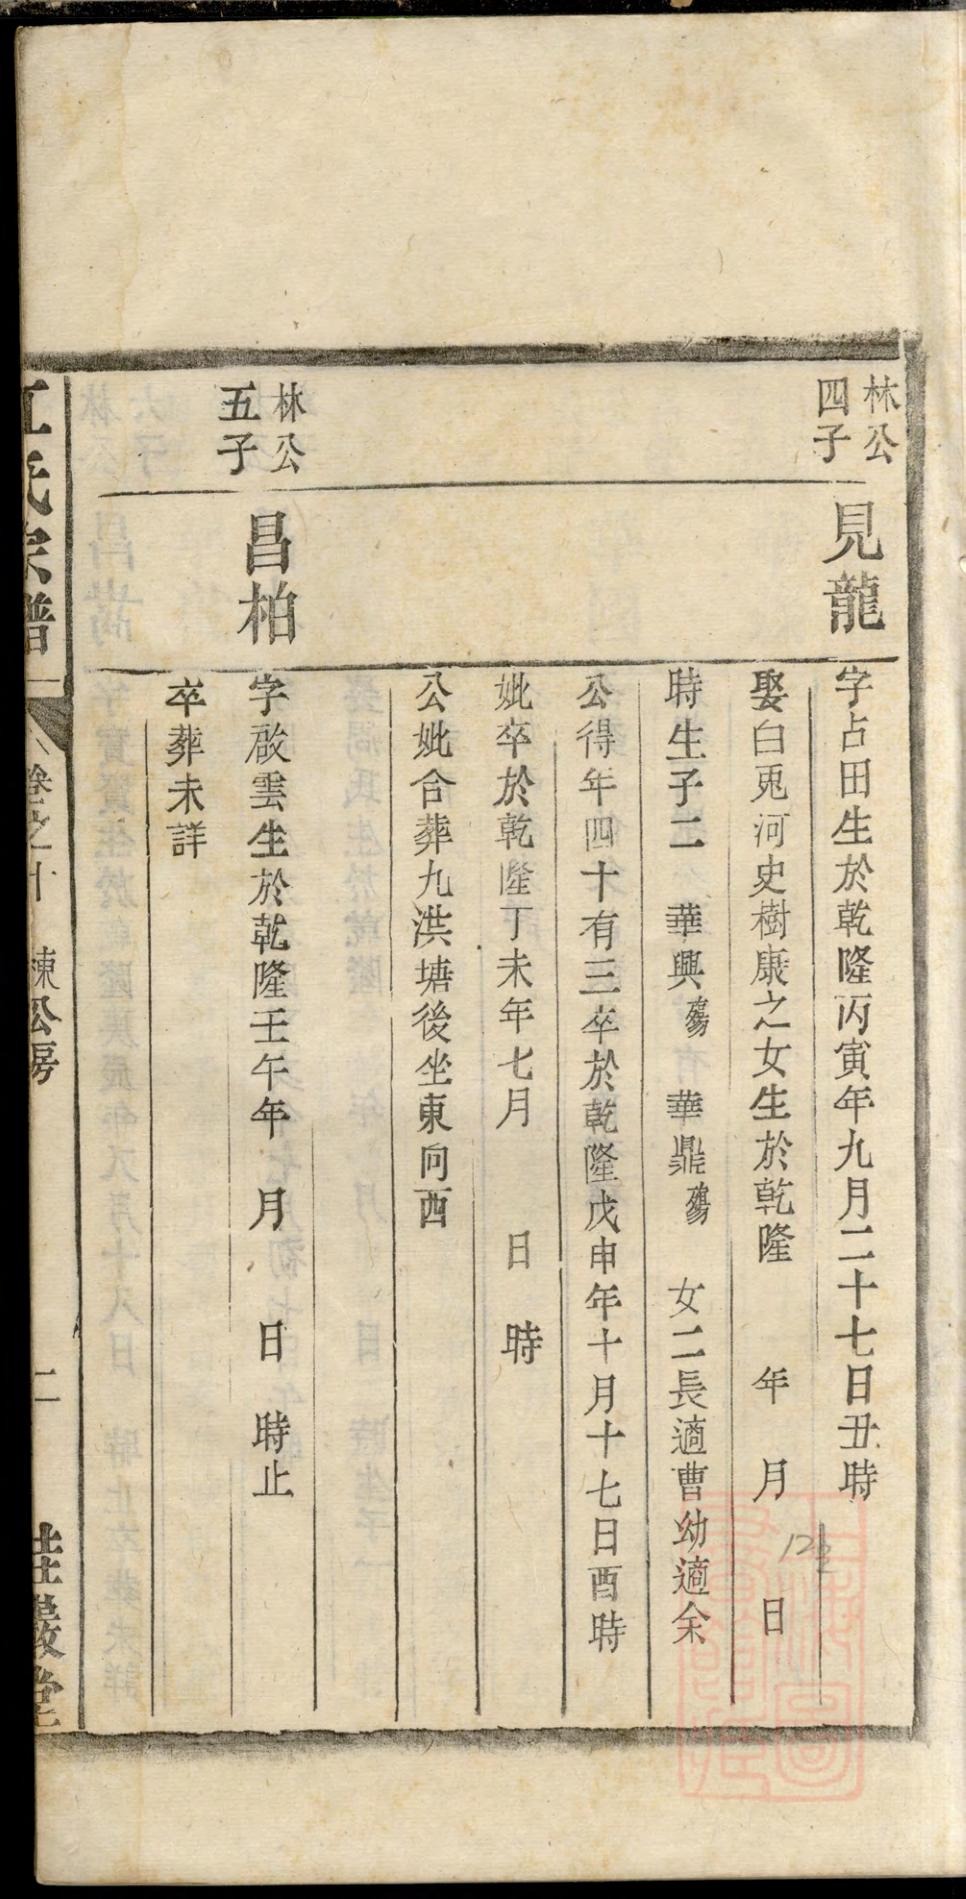 林公
四子
見龍
字占田生於乾隆丙寅年九月二十七日丑時
娶白兎河史樹康之女生於乾隆 年 月 日
時生子二 華興殤 華鼎殤 女二長適曹幼適余
公得年四十有三卒於乾隆戊申年十月十七日酉時
妣卒於乾隆丁未年七月 日 時
公妣合葬九洪塘後坐東向酉
林公
五子
昌柏
字啟雲生於乾隆壬午年 月 日 時止
卒葬未詳
江氏宗譜
卷之十
公房
二